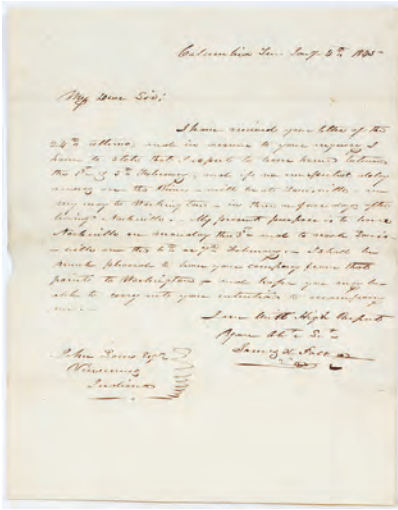 Columbia Ten. Jany 4th 1845
My Dear Sir:
I have received your letter of the
24th ultimo, and in answer to your inquiry I
have to state that I expect to leave home between
the 1st & 5th February, and if no unexpected delay
occurs on the River, will be at Louisville on
my way to Washington in three or four days after
leaving Nashville. My present purpose is to leave
Nashville on Monday the 3rd and to reach Louis-
ville on the 6th or 7th February. I shall be
much pleased to have your company from that
point to Washington and hope you may be
able to carry out your intention to accompany
me.
I am With High Respect
Your Obt. Svt.
James K. Polk
John Law Esqr.
Vincennes
Indiana